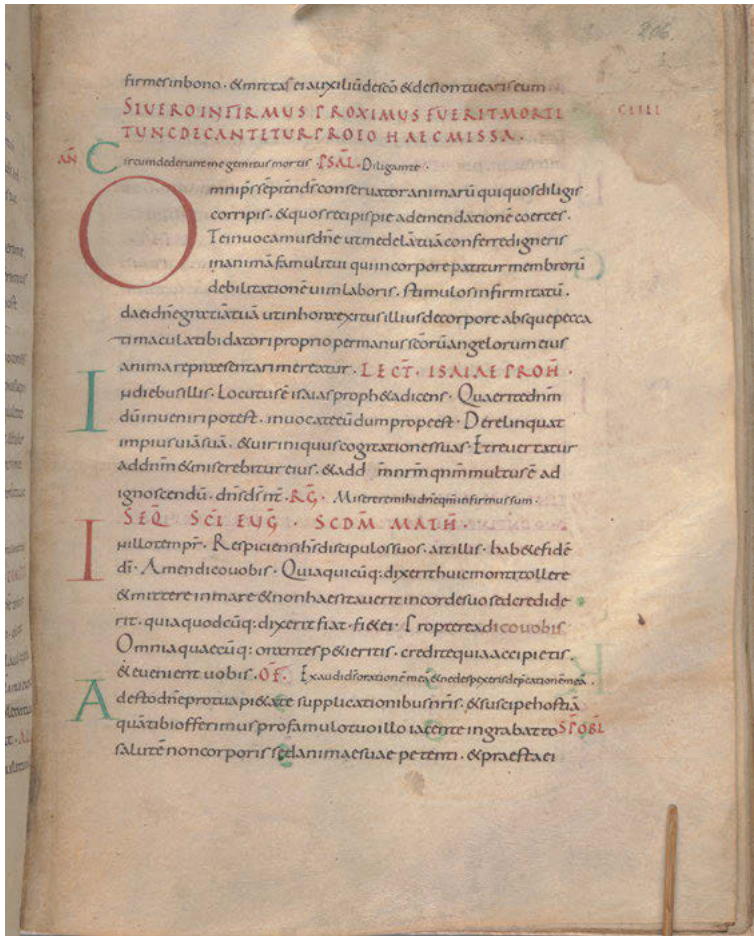 206
firmesinbono · &mittas ei auxiliū descō &desion tuearis eum
SIUERO INFIRMUS PROXIMUS FUERIT MORTI CLIII
TUNC DECANTETUR PRO EO HAEC MISSA ·
AÑ Circumdederunt me gemitus mortis · PSAL · Diligam te ·
Omnip̄s sēpit̄ ds̄ conservator animarū qui quos diligis
corripis · & quos recipis pie ad emendationē coerces ·
Te invocamus dn̄e ut medelā tuā conferre digneris
in animā famuli tui qui in corpore patitur membrorū
debilitationē uim laboris · stimulos infirmitatū ·
da ei dn̄e gratiā tuā ut in hora exitus illius de corpore absque pecca
ti macula tibi datori proprio per manus scōrū angelorum eius
anima repraesentari mereatur · LECT̄ · ISAIAE PROPH̄ ·
In diebus illis · Locutus ē isaias proph&a dicens · Quaerite dn̄m
dū inueniri potest · inuocate eū dum prope est · Derelinquat
impius uiā suā · & uir iniquus cogitationes suas · Et reuertatur
ad dn̄m & miserebitur eius · & ad dm̄ nrm̄ qnm̄ multus ē ad
ignoscendū · dn̄s ds̄ nr̄ · RḠ · Miserere mihi dn̄e qm̄ infirmus sum ·
SEQ̄ SCĪ EUḠ · SCDM̄ MATH̄ ·
In illo tempr̄ · Respiciens ih̄s discipulos suos · ait illis · hab&e fidē
dī · Amen dico uobis · Quia quicūq: dixerit huic monti tollere
& mittere in mare & non haesitauerit in corde suo sed credide
rit · quia quodcūq: dixerit fiat · fi& ei · Propterea dico uobis
Omnia quaecūq: orantes p&ieritis · credite quia accipietis ·
& euenient uobis · OF̄ · Exaudi ds̄ orationē meā & ne despexeris depcationē meā ·
Adesto dn̄e pro tua pi&ate supplicationibus nr̄is · & suscipe hostiā
quā tibi offerimus pro famulo tuo illo iacente in grabatto SP̄ OBL̄
salutē non corporis sed animae suae petenti · & praesta ei